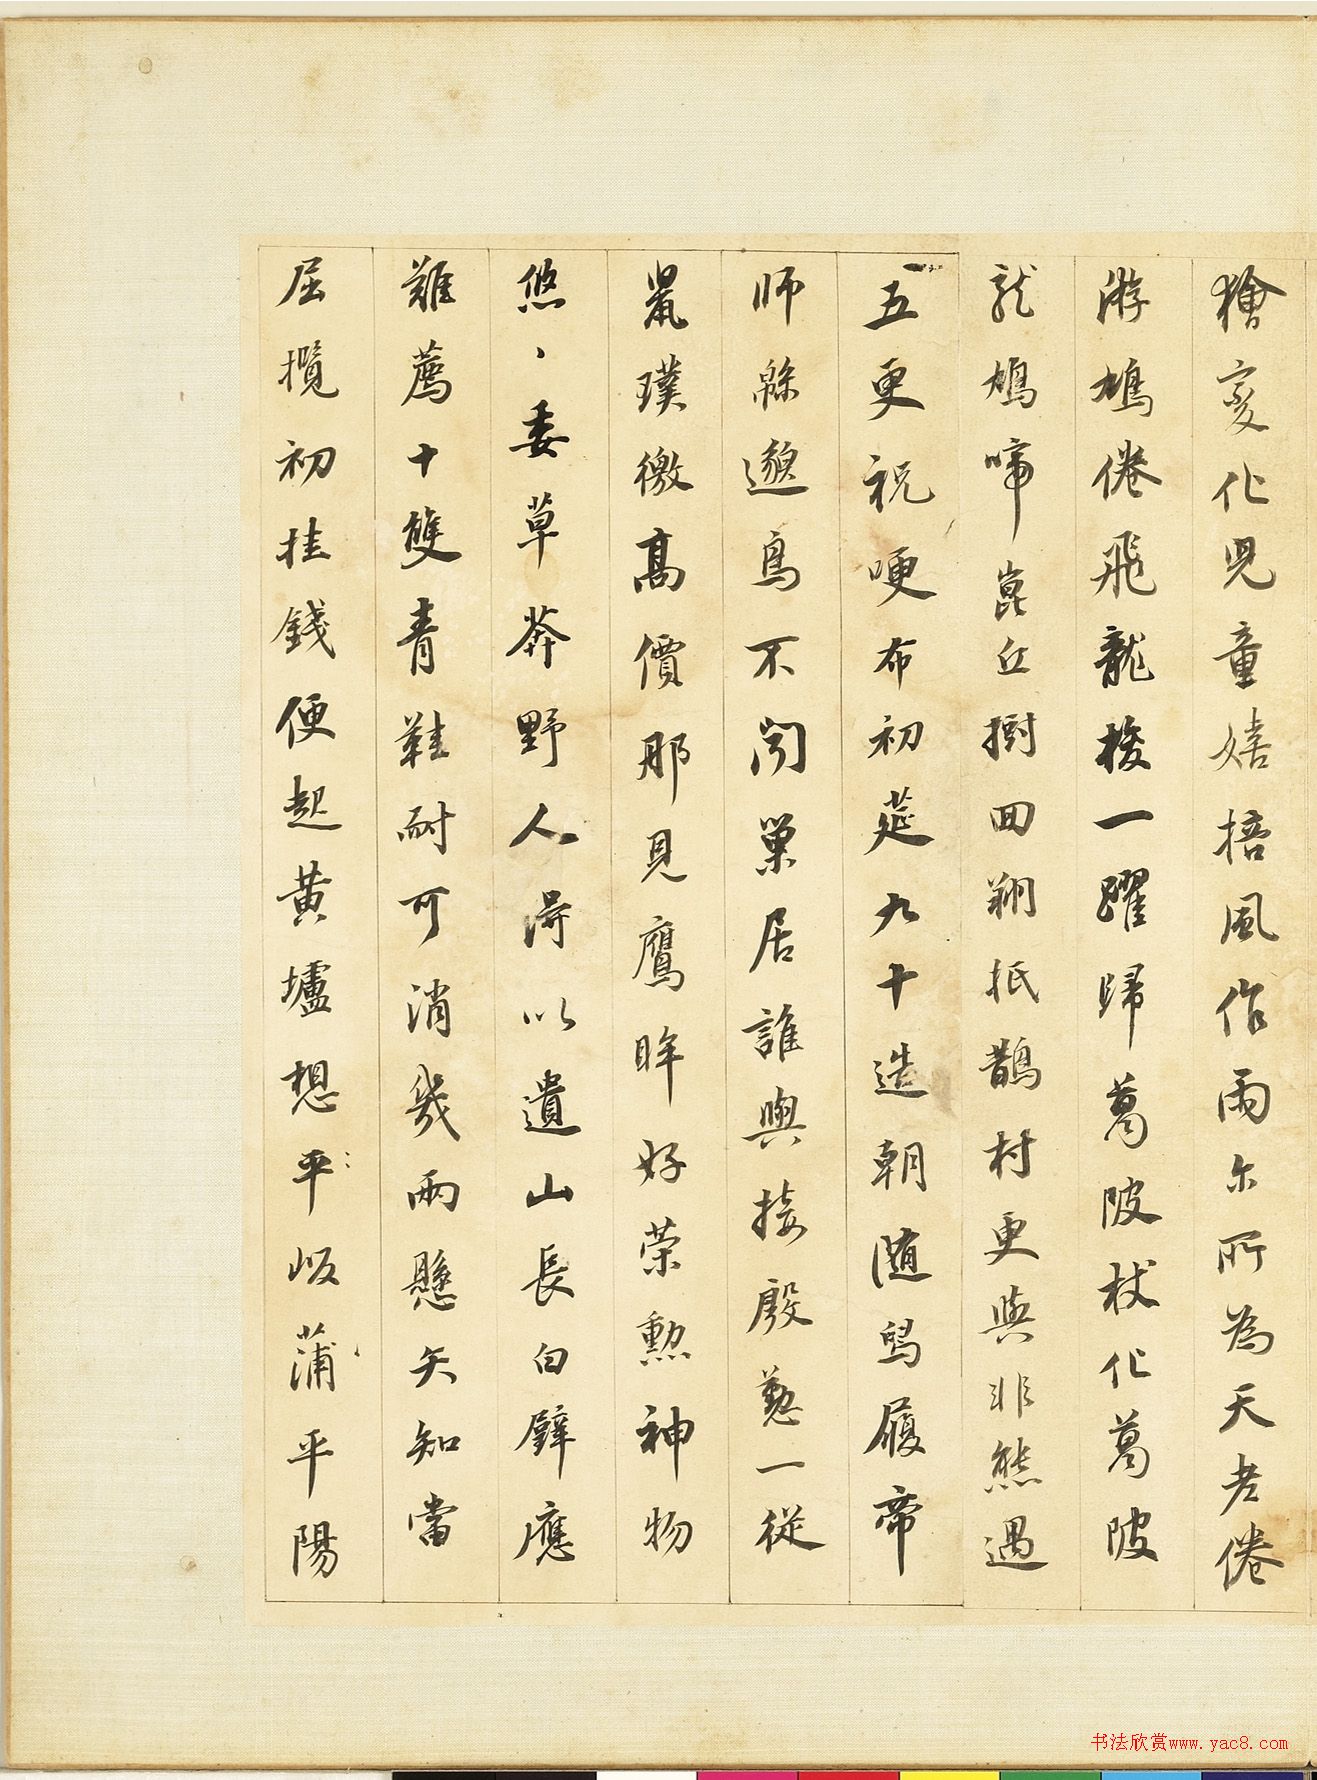 獪變化兒童嬉捂風作雨尓所為天老倦
游鳩倦飛龍梭一躍歸葛陂杖化葛陂
龍鳩啼崑丘樹回翔抵鵲村更與非熊遇
五更祝哽布初莚九十造朝隨舄履帝
師緜邈鳥不聞巢居誰與接殷懃一從
鼠璞徼高價那見鷹眸好榮勲神物
悠、委草莽野人得以遺山長白璧應
難薦十雙青鞋耐可消幾兩懸矢知當
屈攬初挂錢便起黃壚想平岅蒲平陽
书法欣赏www.yac8.com